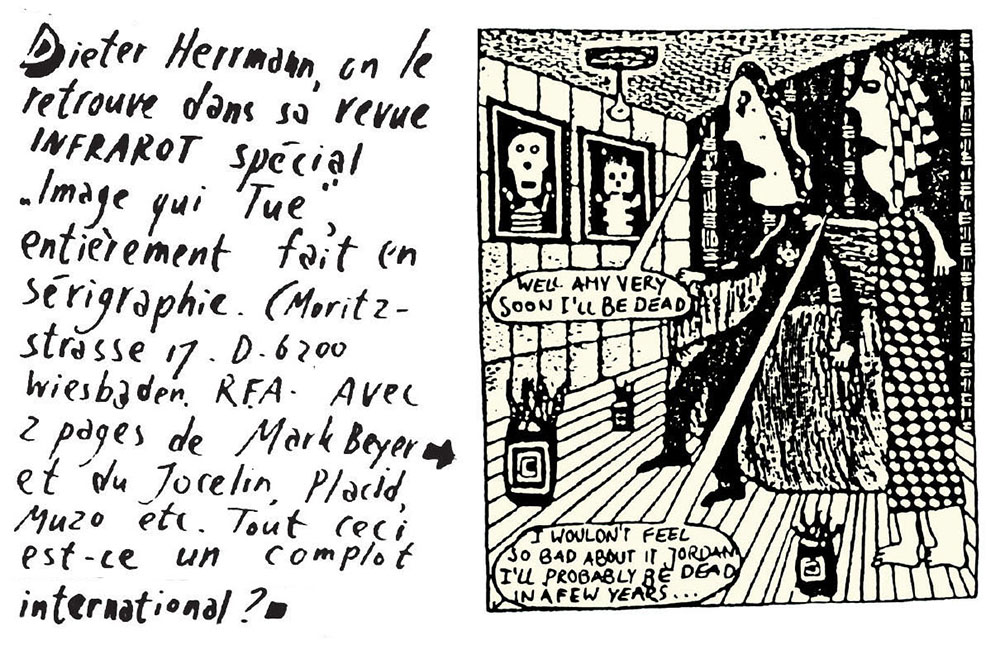 Dieter Herrmann, on le
retrouve dans sa revue
INFRAROT spécial
„Image qui Tue"
entièrement fait en
sérigraphie. (Moritz-
strasse 17. D-6200
Wiesbaden. RFA. Avec
2 pages de Mark Beyer
et du Jocelin, Placid,
Muzo etc. Tout ceci
est-ce un complot
international ?
WELL AMY VERY
SOON I'LL BE DEAD
I WOULDN'T FEEL
SO BAD ABOUT IT JORDAN
I'LL PROBABLY BE DEAD
IN A FEW YEARS...